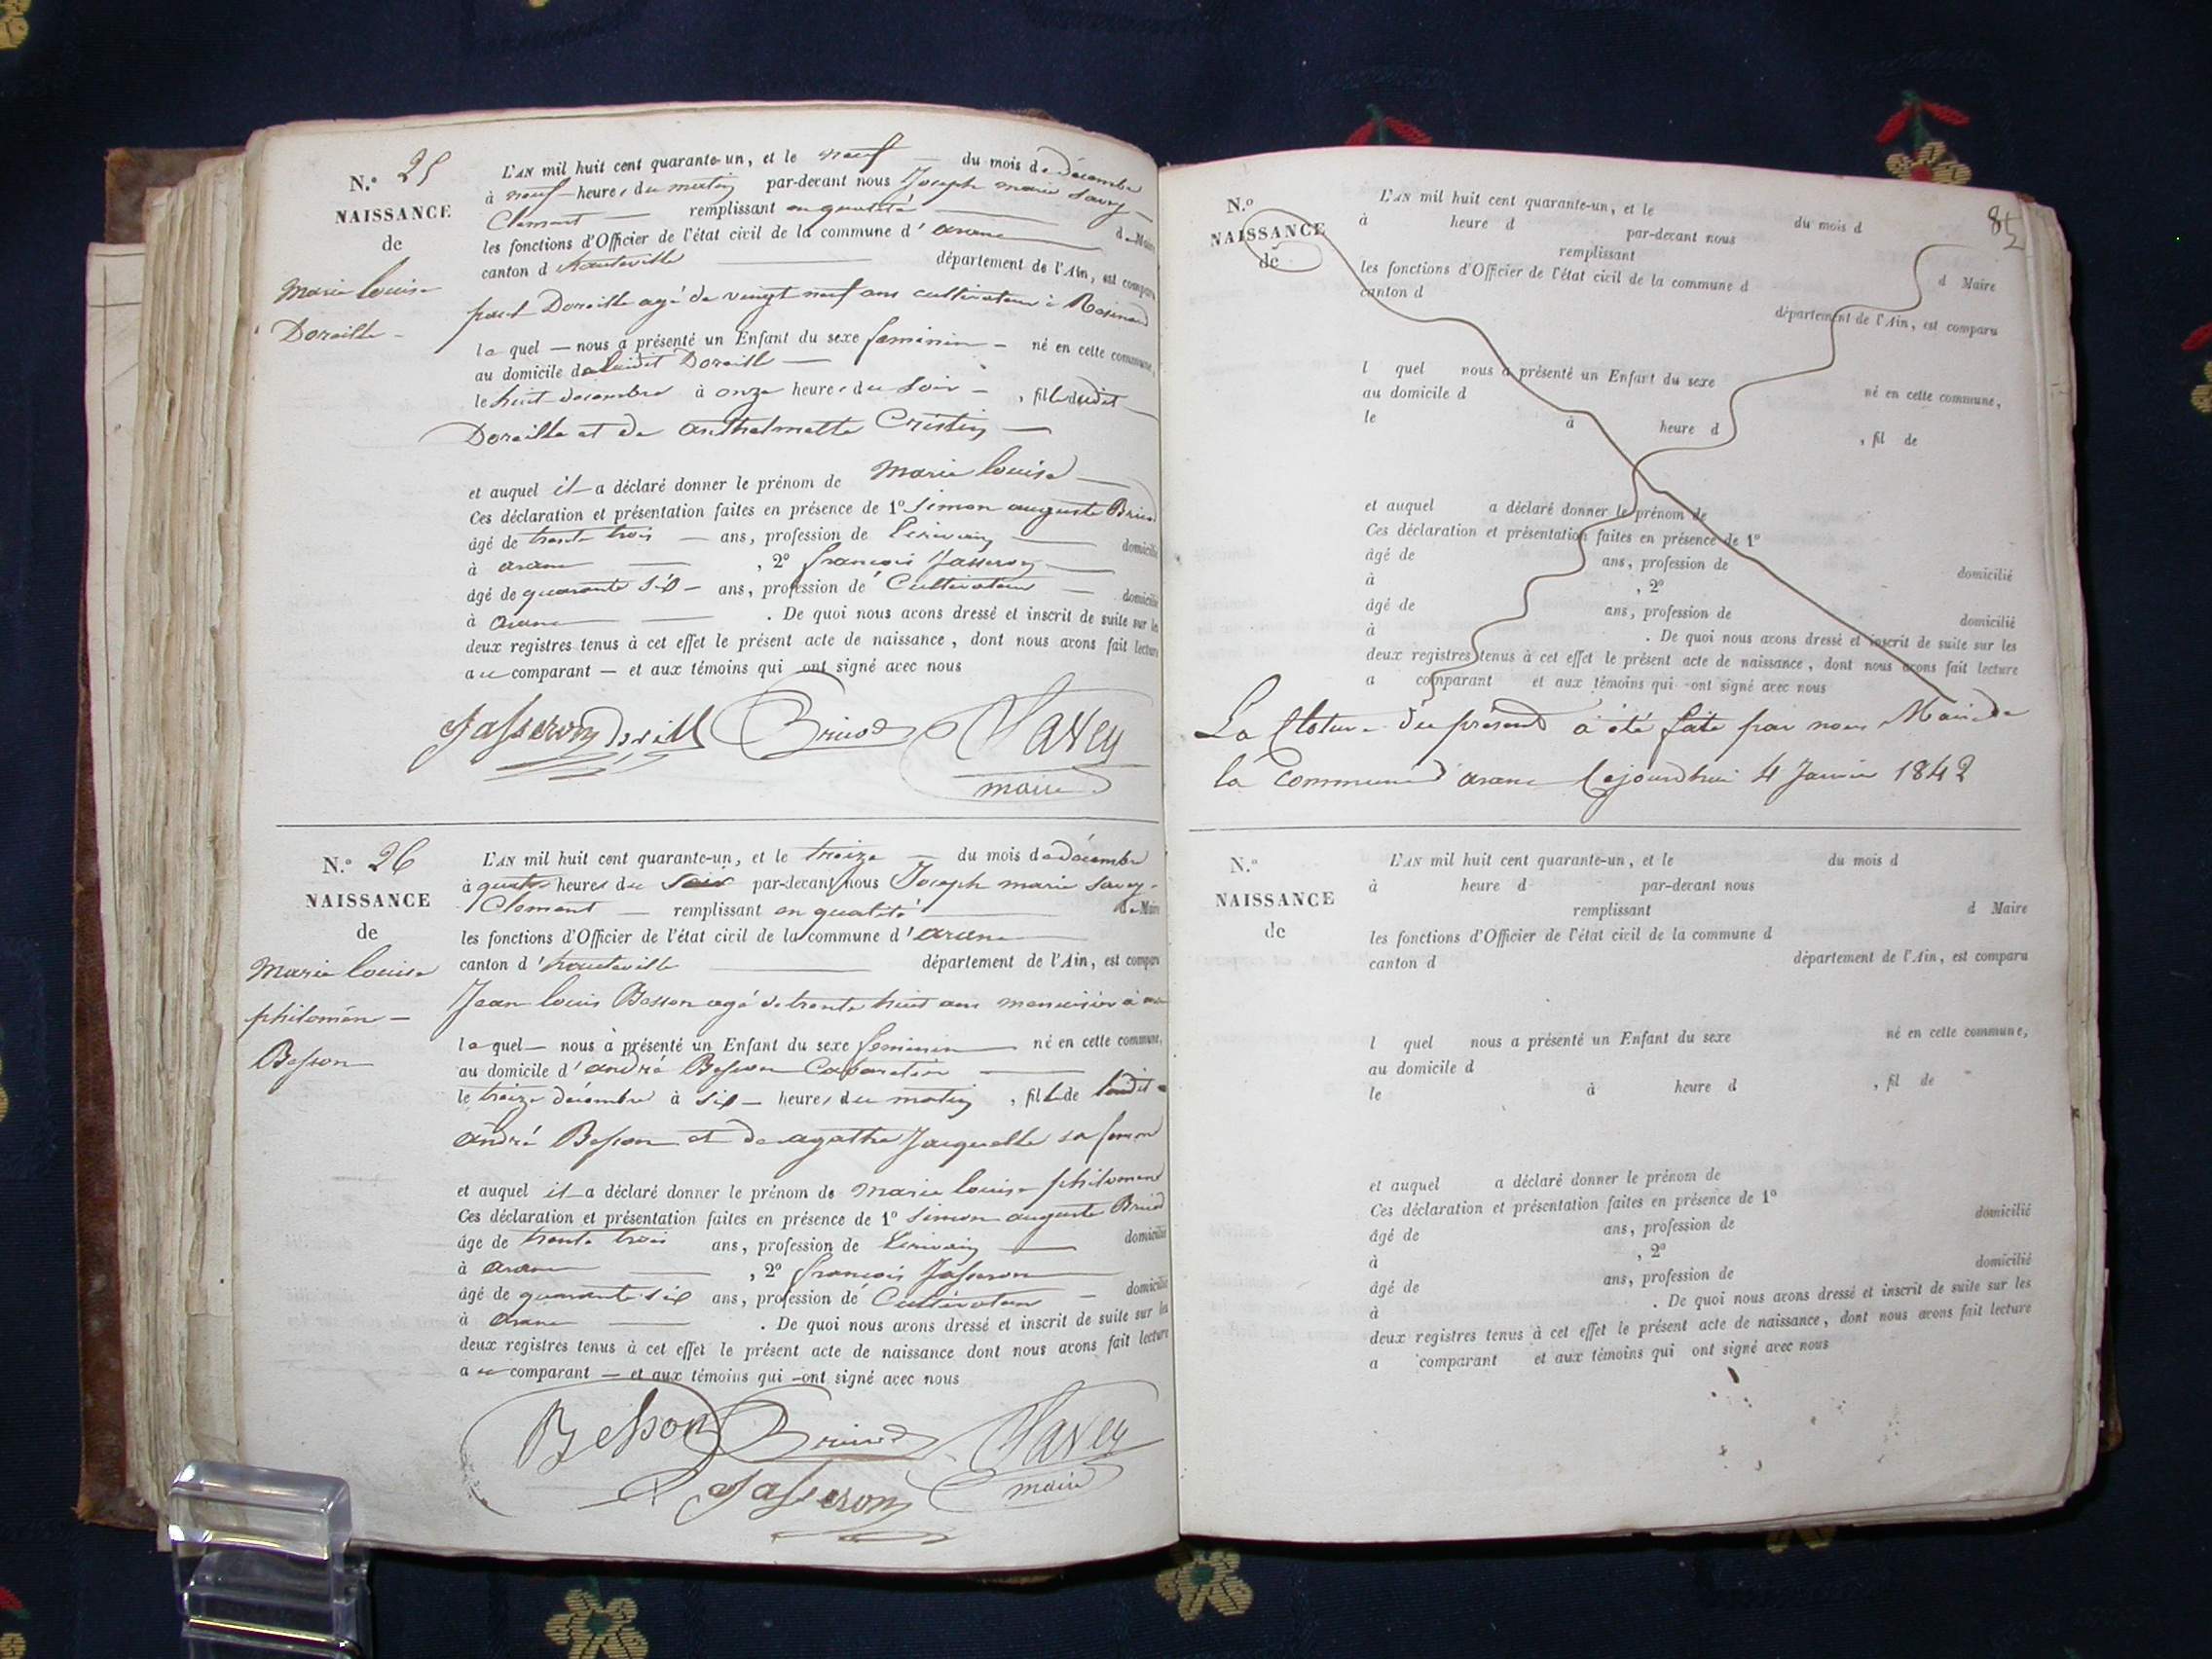 N.º 25
NAISSANCE
de
Marie louise
Doreille
L'AN mil huit cent quarante-un, et le neuf du mois de décembre
à neuf heures du matin par-devant nous Joseph marie Savey
Clement remplissant en qualité de Maire
les fonctions d'Officier de l'état civil de la commune d'arane
canton d'hauteville département de l'Ain, est comparu
paul Doreille agé de vingt neuf ans cultivateur à
le quel nous a présenté un Enfant du sexe feminin né en cette commune,
au domicile de ludit Doreille
le huit decembre à onze heures du soir , fille dudit
Doreille et de anthelmette Cristin
et auquel il a déclaré donner le prénom de marie louise
Ces déclaration et présentation faites en présence de 1º Simon auguste Briod
âgé de trente trois ans, profession de Ecrivain domicilié
à arane , 2º françois Jasseron
âgé de quarante six ans, profession de Cultivateur domicilié
à arane . De quoi nous avons dressé et inscrit de suite sur les
deux registres tenus à cet effet le présent acte de naissance, dont nous avons fait lecture
au comparant et aux témoins qui ont signé avec nous
Jasseron Doreill Briod Savey
maire
N.º 26
NAISSANCE
de
Marie louise
philomène
Besson
L'AN mil huit cent quarante-un, et le treize du mois de décembre
à quatre heures du soir par-devant nous Joseph marie Savey
Clement remplissant en qualité de Maire
les fonctions d'Officier de l'état civil de la commune d'arane
canton d'hauteville département de l'Ain, est comparu
Jean louis Besson agé de trente huit ans menuisier à
le quel nous a présenté un Enfant du sexe feminin né en cette commune,
au domicile d'andré Besson Cabaretier
le treize décembre à six heures du matin , fille de ludit
andré Besson et de agathe Jacquelle sa femme
et auquel il a déclaré donner le prénom de marie louise philomene
Ces déclaration et présentation faites en présence de 1º Simon auguste Briod
âgé de trente trois ans, profession de Ecrivain domicilié
à arane , 2º françois Jasseron
âgé de quarante six ans, profession de Cultivateur domicilié
à arane . De quoi nous avons dressé et inscrit de suite sur les
deux registres tenus à cet effet le présent acte de naissance dont nous avons fait lecture
au comparant et aux témoins qui ont signé avec nous
Besson Briod Savey
Jasseron maire
85
N.º
NAISSANCE
de
L'AN mil huit cent quarante-un, et le du mois d
à heure d par-devant nous
remplissant d Maire
les fonctions d'Officier de l'état civil de la commune d
canton d département de l'Ain, est comparu
l quel nous a présenté un Enfant du sexe né en cette commune,
au domicile d
le à heure d , fil de
et auquel a déclaré donner le prénom de
Ces déclaration et présentation faites en présence de 1º
âgé de ans, profession de domicilié
à , 2º
âgé de ans, profession de domicilié
à . De quoi nous avons dressé et inscrit de suite sur les
deux registres tenus à cet effet le présent acte de naissance, dont nous avons fait lecture
a comparant et aux témoins qui ont signé avec nous
La Cloture du présent a été faite par nous Maire de
la commune d'arane Cejourdhui 4 Janvier 1842
N.º
NAISSANCE
de
L'AN mil huit cent quarante-un, et le du mois d
à heure d par-devant nous
remplissant d Maire
les fonctions d'Officier de l'état civil de la commune d
canton d département de l'Ain, est comparu
l quel nous a présenté un Enfant du sexe né en cette commune,
au domicile d
le à heure d , fil de
et auquel a déclaré donner le prénom de
Ces déclaration et présentation faites en présence de 1º
âgé de ans, profession de domicilié
à , 2º
âgé de ans, profession de domicilié
à . De quoi nous avons dressé et inscrit de suite sur les
deux registres tenus à cet effet le présent acte de naissance, dont nous avons fait lecture
a comparant et aux témoins qui ont signé avec nous